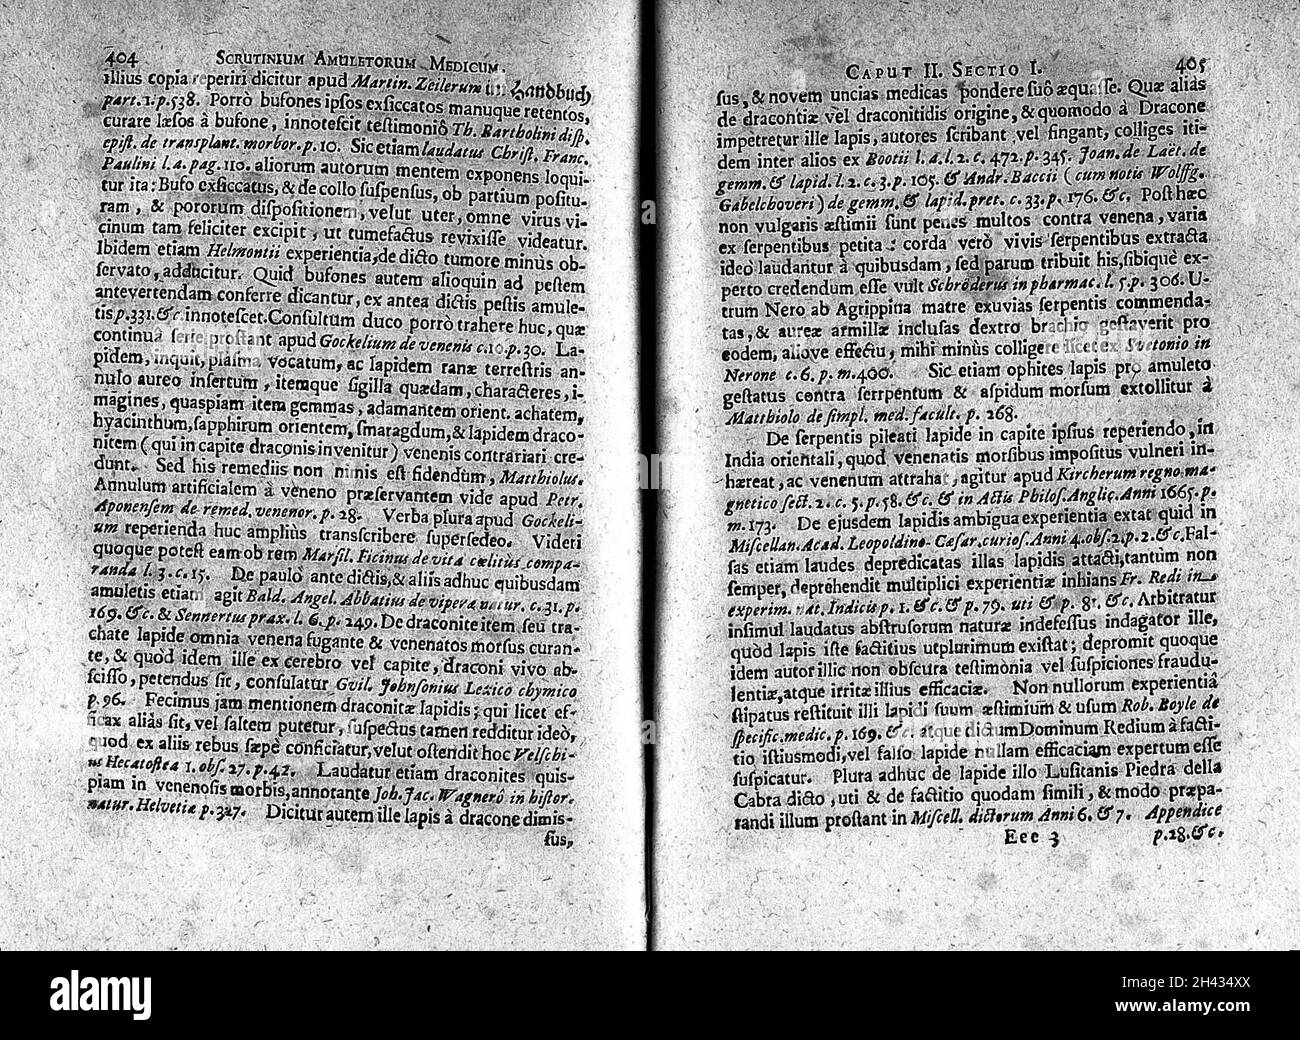 404 SCRUTINIUM AMULETORUM MEDICUM.
illius copia reperiri dicitur apud Martin. Zeilerum im Handbuch
part. 1. p. 538. Porrò bufones ipsos exsiccatos manuque retentos,
curare læsos à bufone, innotescit testimoniô Th. Bartholini disp.
epist. de transplant. morbor. p. 10. Sic etiam laudatus Christ. Franc.
Paulini l. a. pag. 110. aliorum autorum mentem exponens loqui-
tur ita: Bufo exsiccatus, & de collo suspensus, ob partium positu-
ram, & pororum dispositionem, velut uter, omne virus vi-
cinum tam feliciter excipit, ut tumefactus revixisse videatur.
Ibidem etiam Helmontii experientia, de dicto tumore minùs ob-
servato, adducitur. Quid bufones autem alioquin ad pestem
antevertendam conferre dicantur, ex antea dictis pestis amule-
tis p. 331. &c. innotescet. Consultum duco porrò trahere huc, quæ
continuâ serie prostant apud Gockelium de venenis c. 10. p. 30. La-
pidem, inquit, plasma vocatum, ac lapidem ranæ terrestris an-
nulo aureo insertum, itemque sigilla quædam, characteres, i-
magines, quaspiam item gemmas, adamantem orient. achatem,
hyacinthum, sapphirum orientem, smaragdum, & lapidem draco-
nitem (qui in capite draconis invenitur) venenis contrariari cre-
dunt. Sed his remediis non nimis est fidendum, Matthiolus.
Annulum artificialem à veneno præservantem vide apud Petr.
Aponensem de remed. venenor. p. 28. Verba plura apud Gockeli-
um reperienda huc ampliùs transcribere supersedeo. Videri
quoque potest eam ob rem Marsil. Ficinus de vita cœlitùs compa-
randa l. 3. c. 15. De paulò ante dictis, & aliis adhuc quibusdam
amuletis etiam agit Bald. Angel. Abbatius de vipera natur. c. 31. p.
169. &c. & Sennertus prax. l. 6. p. 249. De draconite item seu tra-
chate lapide omnia venena fugante & venenatos morsus curan-
te, & quòd idem ille ex cerebro vel capite, draconi vivo ab-
scisso, petendus sit, consulatur Gvil. Johnsonius Lexico chymico
p. 96. Fecimus jam mentionem draconitæ lapidis; qui licet ef-
ficax aliàs sit, vel saltem putetur, suspectus tamen redditur ideò,
quod ex aliis rebus sæpè conficiatur, velut ostendit hoc Velschi-
us Hecatostea 1. obs. 27. p. 42. Laudatur etiam draconites quis-
piam in venenosis morbis, annotante Joh. Jac. Wagnerô in histor.
natur. Helvetiæ p. 327. Dicitur autem ille lapis à dracone dimis-
sus,
CAPUT II. SECTIO I. 405
sus, & novem uncias medicas pondere suô æquasse. Quæ aliàs
de dracontiæ vel draconitidis origine, & quomodo à Dracone
impètretur ille lapis, autores scribant vel fingant, colliges iti-
dem inter alios ex Bootii l. a. l. 2. c. 472. p. 345. Joan. de Laët. de
gemm. & lapid. l. 2. c. 3. p. 105. & Andr. Baccii (cum notis Wolffg.
Gabelchoveri) de gemm. & lapid. pret. c. 33. p. 176. &c. Post hæc
non vulgaris æstimii sunt penes multos contra venena, varia
ex serpentibus petita: corda verò vivis serpentibus extracta
ideò laudantur à quibusdam, sed parum tribuit his, sibique ex-
perto credendum esse vult Schröderus in pharmac. l. 5. p. 306. U-
trum Nero ab Agrippina matre exuvias serpentis commenda-
tas, & aureæ armillæ inclusas dextro brachio gestaverit pro
eodem, aliove effectu, mihi minùs colligere liscet ex Svetonio in
Nerone c. 6. p. m. 400. Sic etiam ophites lapis pro amuleto
gestatus contra serrpentum & aspidum morsum extollitur à
Matthiolo de simpl. med. facult. p. 268.
De serpentis pileati lapide in capite ipsius reperiendo, in
India orientali, quod venenatis morsibus impositus vulneri in-
hæreat, ac venenum attrahat, agitur apud Kircherum regno ma-
gnetico sect. 2. c. 5. p. 58. &c. & in Actis Philos. Anglic. Anni 1665. p.
m. 173. De ejusdem lapidis ambigua experientia extat quid in
Miscellan. Acad. Leopoldino-Cæsar. curios. Anni 4. obs. 2. p. 2. &c. Fal-
sas etiam laudes deprædicatas illas lapidis attacti, tantum non
semper, deprehendit multiplici experientiæ inhians Fr. Redi in
experim. nat. Indicis p. 1. &c. & p. 79. uti & p. 81. &c. Arbitratur
insimul laudatus abstrusorum naturæ indefessus indagator ille,
quòd lapis iste factitius utplurimum existat; depromit quoque
idem autor illic non obscura testimònia vel suspiciones fraudu-
lentiæ, atque irritæ illius efficaciæ. Non nullorum experientiâ
stipatus restituit illi lapidi suum æstimium & usum Rob. Boyle de
specific. medic. p. 169. &c. atque dictum Dominum Redium à facti-
tio istiusmodi, vel falso lapide nullam efficaciam expertum esse
suspicatur. Plura adhuc de lapide illo Lusitanis Piedra della
Cabra dicto, uti & de factitio quodam simili, & modo præpa-
randi illum prostant in Miscell. dictorum Anni 6. & 7. Appendice
Eee 3 p. 28. &c.
alamy
Image ID: 2H434XX
www.alamy.com